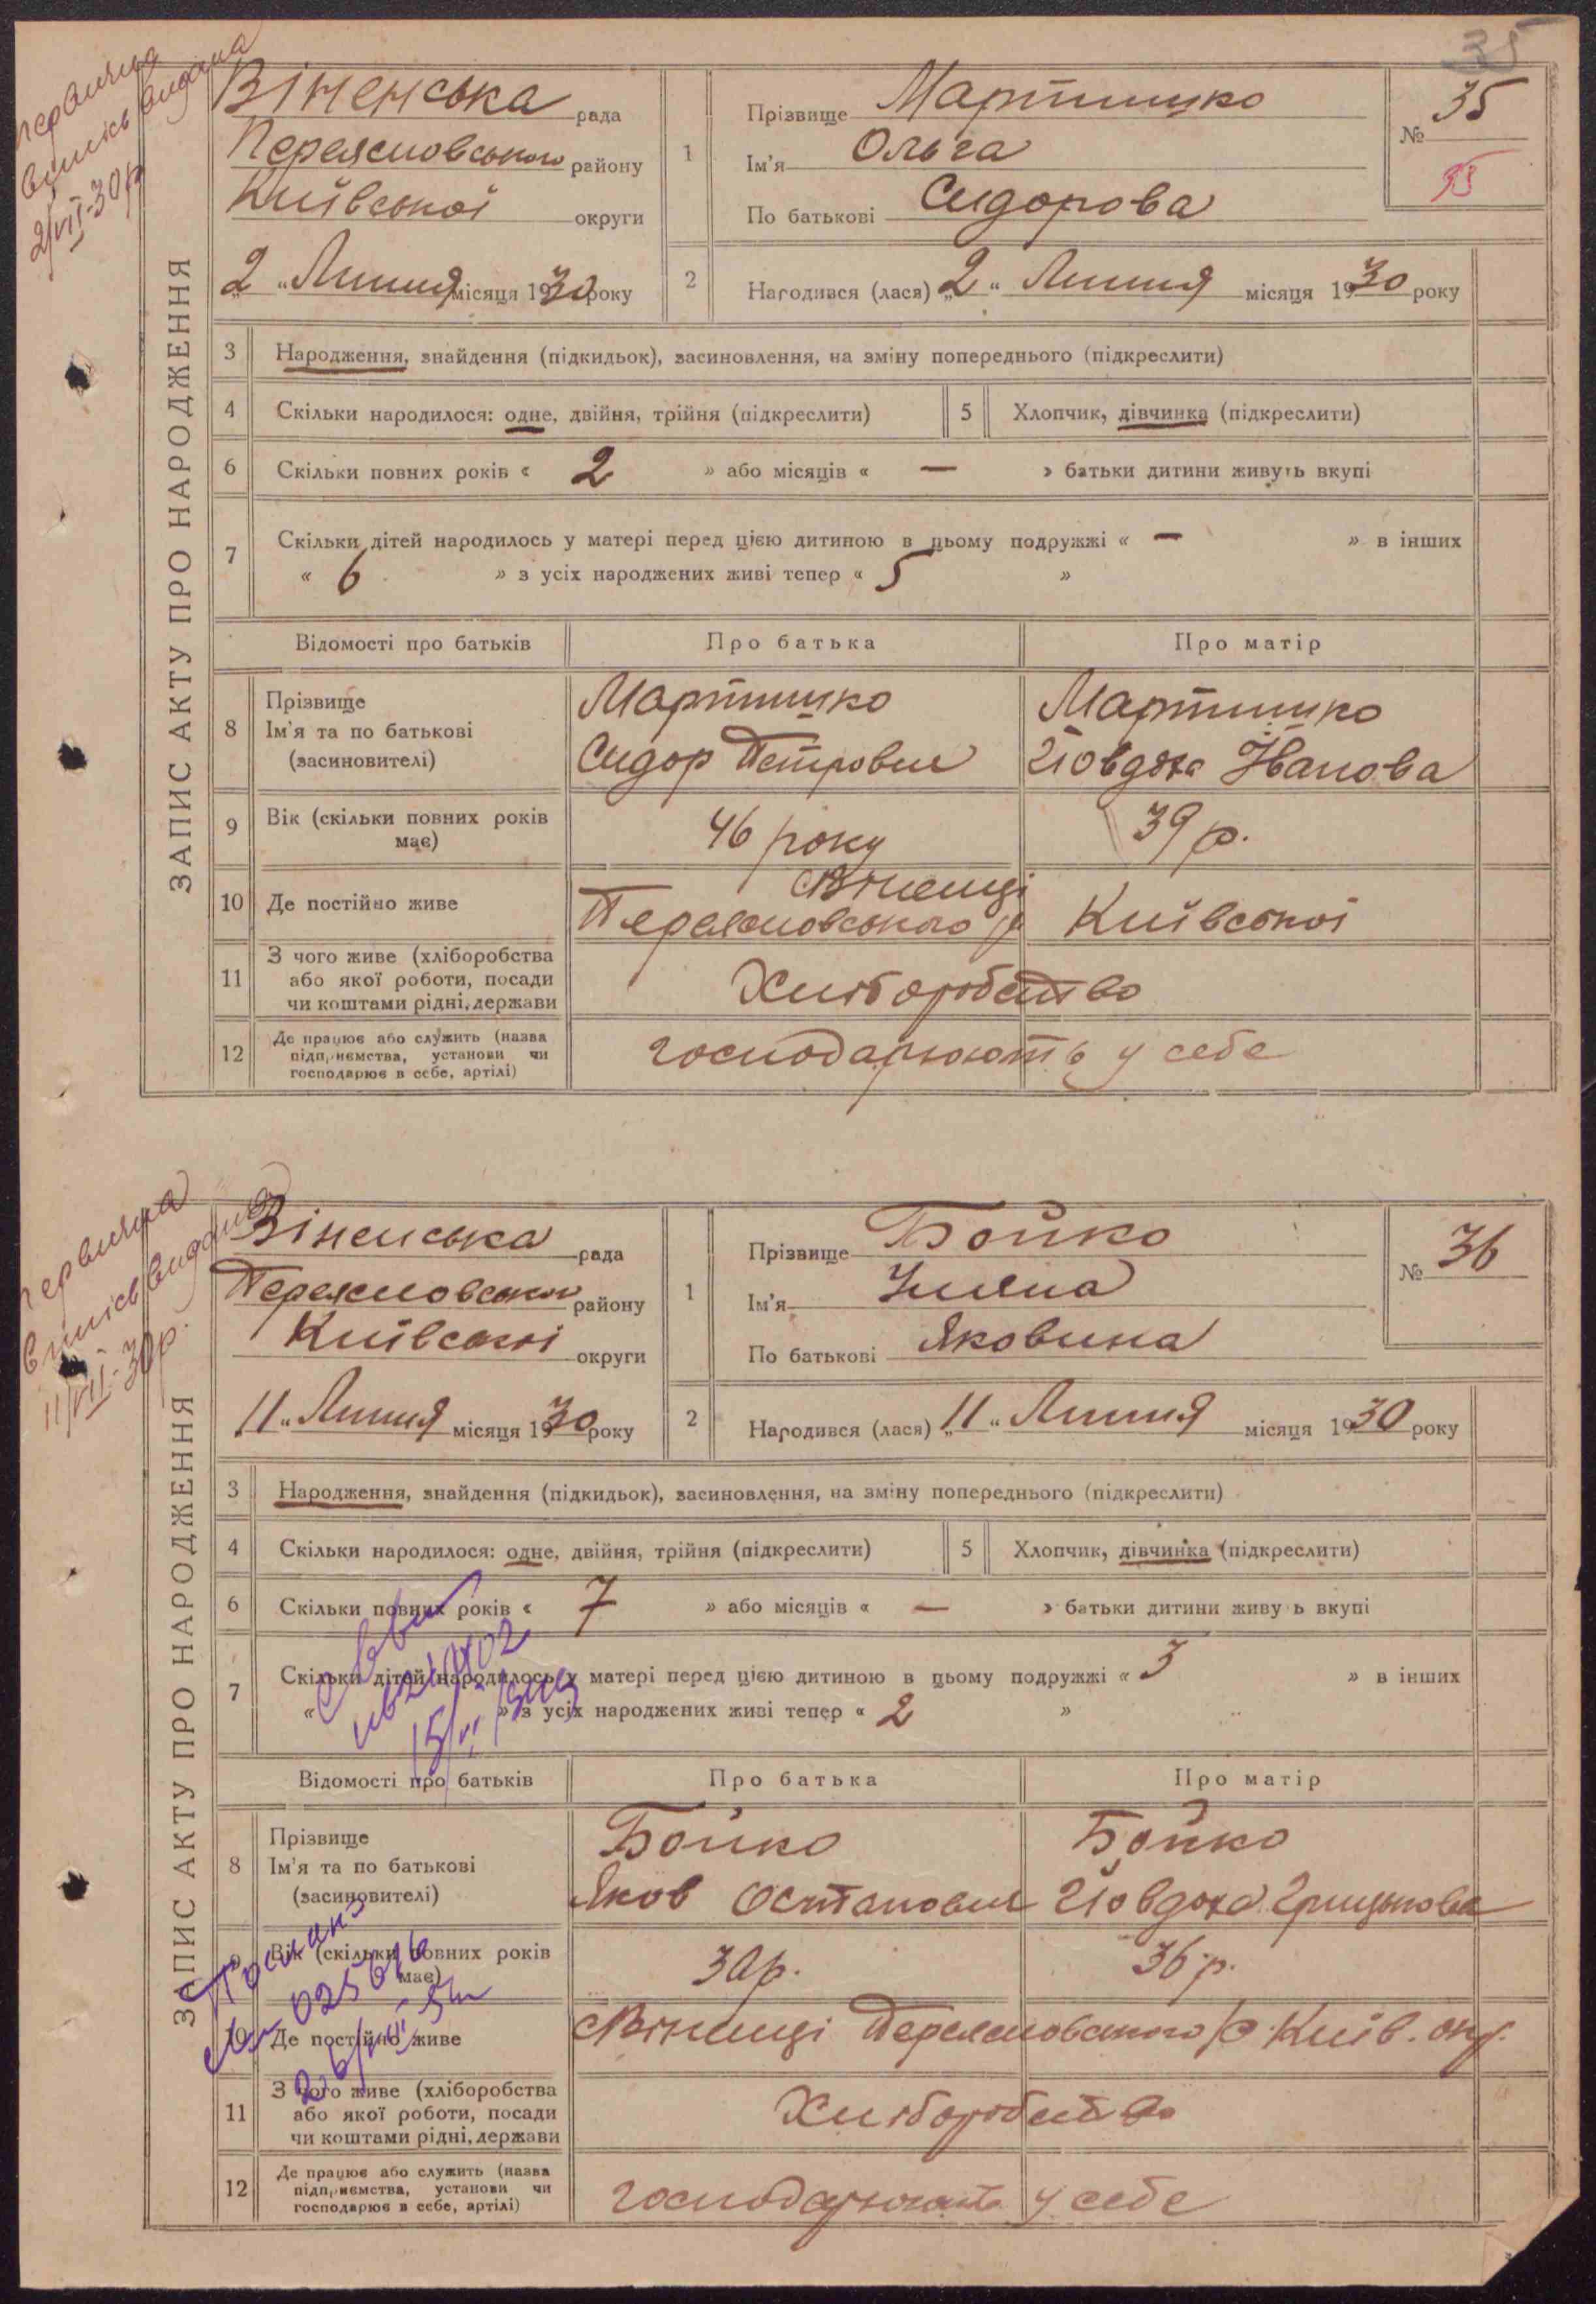 35
Первична
випись видана
2/VII-30р
ЗАПИС АКТУ ПРО НАРОДЖЕННЯ
Віненська рада
Переяславського району
Київської округи
"2" Липня місяця 1930 року
1
Прізвище Мартишко
Ім'я Ольга
По батькові Сидорова
№ 35
95
2
Народився (лася) "2" Липня місяця 1930 року
3 Народження, знайдення (підкидьок), засиновлення, на зміну попереднього (підкреслити)
4 Скільки народилося: одне, двійня, трійня (підкреслити) 5 Хлопчик, дівчинка (підкреслити)
6 Скільки повних років « 2 » або місяців « — » батьки дитини живуть вкупі
7 Скільки дітей народилось у матері перед цією дитиною в цьому подружжі « — » в інших
« 6 » з усіх народжених живі тепер « 5 »
Відомості про батьків Про батька Про матір
8 Прізвище Мартишко Мартишко
Ім'я та по батькові
(засиновителі) Сидор Петрович Йовдоха Іванова
9 Вік (скільки повних років
має) 46 року 39 р.
10 Де постійно живе с Вінинці
Переяславського р Київської
11 З чого живе (хліборобства
або якої роботи, посади
чи коштами рідні, держави Хліборобство
12 Де працює або служить (назва
підприємства, установи чи
господарює в себе, артілі) господарюють у себе
Первична
випись видана
11/VII-30р.
ЗАПИС АКТУ ПРО НАРОДЖЕННЯ
Віненська рада
Переяславсько району
Київської округи
"11" Липня місяця 1930 року
1
Прізвище Бойко
Ім'я Уляна
По батькові Яковина
№ 36
2
Народився (лася) "11" Липня місяця 1930 року
3 Народження, знайдення (підкидьок), засиновлення, на зміну попереднього (підкреслити)
4 Скільки народилося: одне, двійня, трійня (підкреслити) 5 Хлопчик, дівчинка (підкреслити)
6 Скільки повних років « 7 » або місяців « — » батьки дитини живуть вкупі
7 Скільки дітей народилось у матері перед цією дитиною в цьому подружжі « 3 » в інших
« » з усіх народжених живі тепер « 2 »
Відомості про батьків Про батька Про матір
8 Прізвище Бойко Бойко
Ім'я та по батькові
(засиновителі) Яков Остапович Йовдоха Грицькова
9 Вік (скільки повних років
має) 30р. 36 р.
10 Де постійно живе с Вінинці Переяславського р Київ. окр.
11 З чого живе (хліборобства
або якої роботи, посади
чи коштами рідні, держави Хліборобство
12 Де працює або служить (назва
підприємства, установи чи
господарює в себе, артілі) господарюють у себе